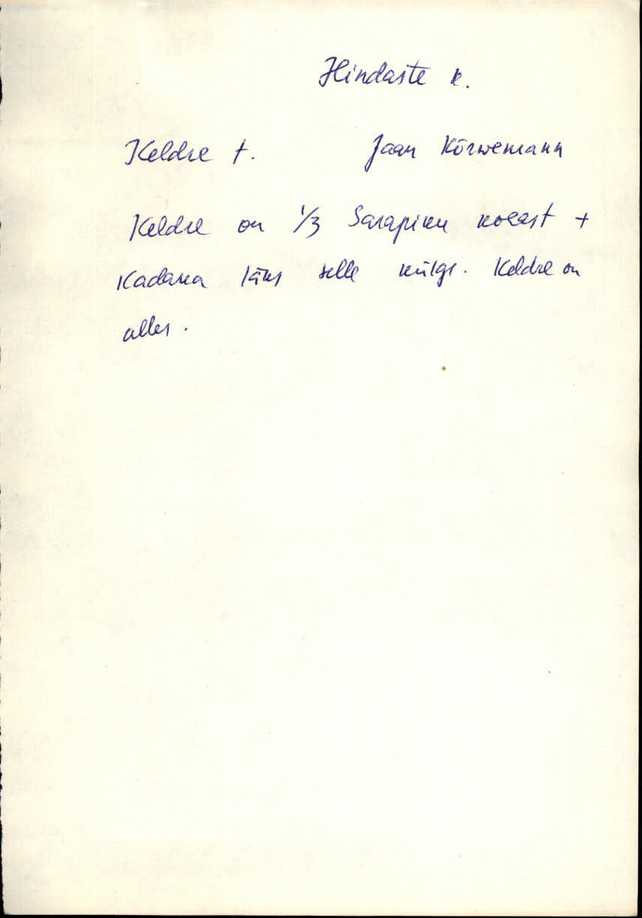 Hindaste k.
Keldre t. Jaan Kõrwemann
Keldre on 1/3 Sarapiku kohast +
Kadaka läks selle külge. Keldre on
alles.